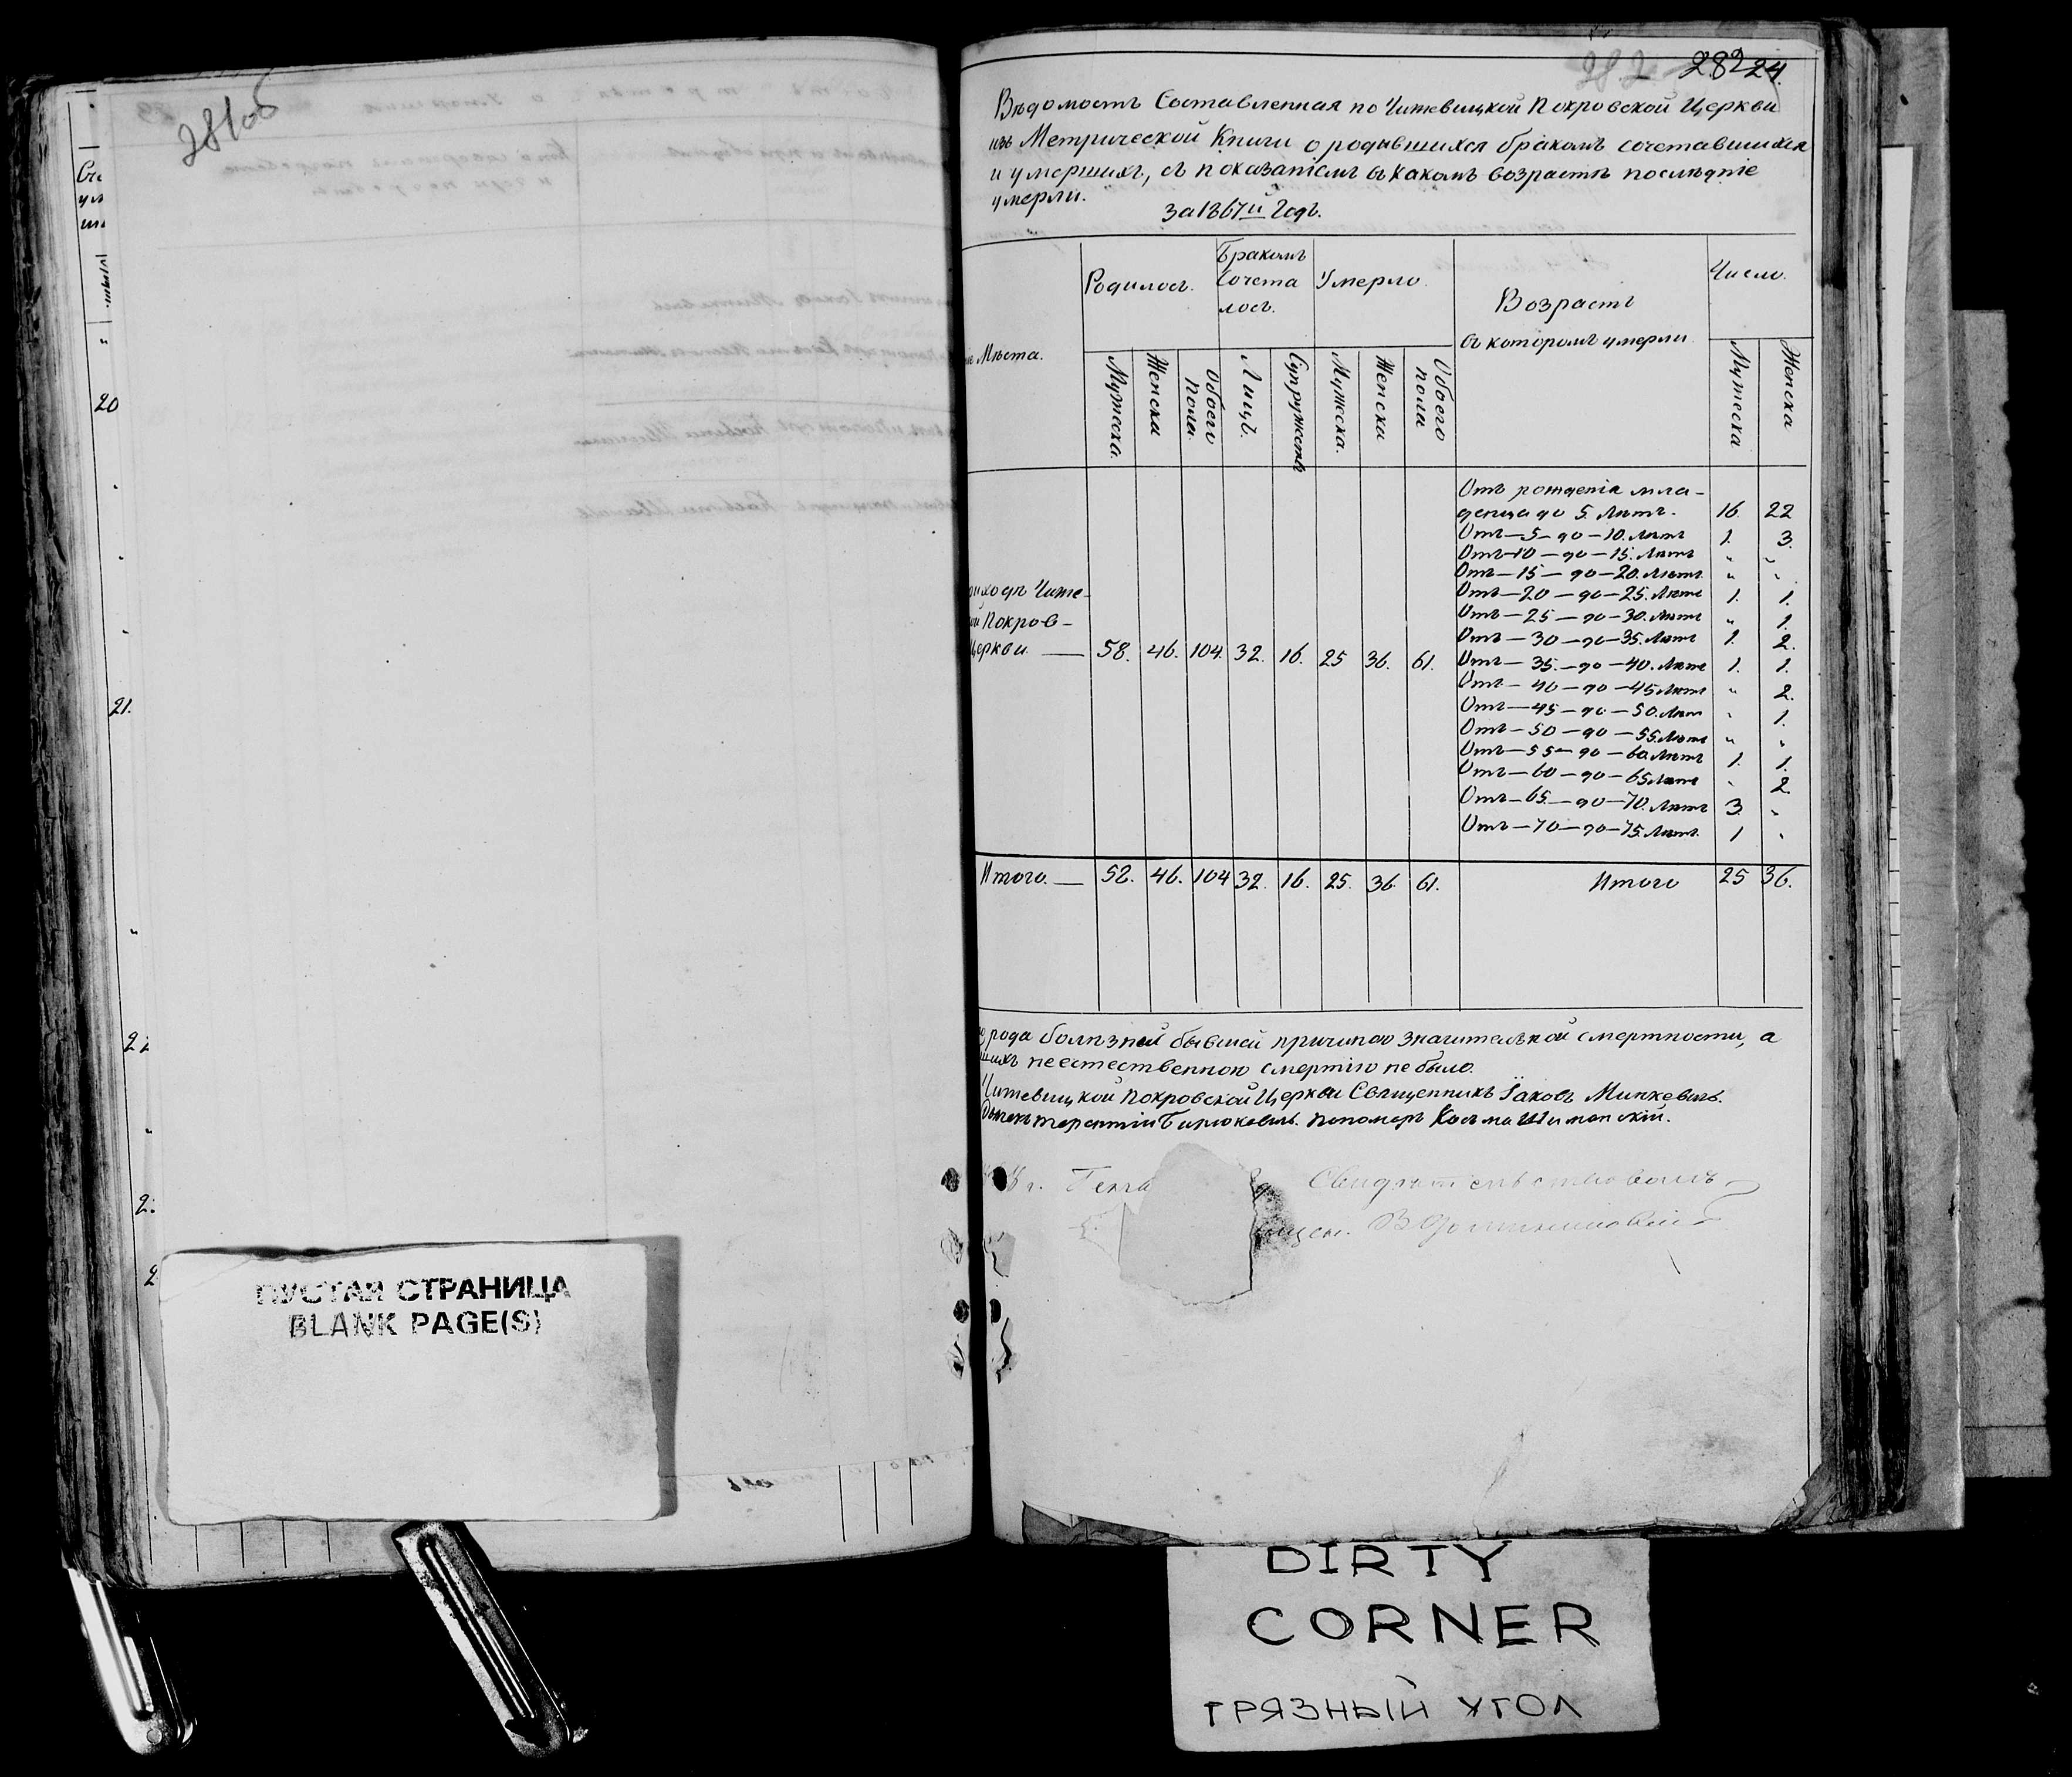 281об
20
21.
ПУСТАЯ СТРАНИЦА
BLANK PAGE(S)
282 282 24.
Вѣдомость Составленная по Чижевицкой Покровской Церкви
изъ Метрической Книги о родившихся бракомъ сочетавшихся
и умершихъ, съ показаніемъ въ какомъ возрастѣ послѣдніе
умерли.
За 1867й Годъ.
Мѣста.
Родилось.
Бракомъ
Сочета
лось.
Умерло.
Возрастъ
въ которомъ умерли
Число.
Мужеска.
Женска
Обоего
пола.
Лицъ.
Супружествъ
Мужеска.
Женска
Обоего
пола
Мужеска
Женска
Отъ рожденія мла-
денца до 5. Лѣтъ. 16. 22
Отъ—5—до—10. Лѣтъ 1. 3.
Отъ—10—до—15. Лѣтъ " "
Отъ—15—до—20. Лѣтъ " "
Отъ—20—до—25. Лѣтъ 1. 1.
Отъ—25—до—30. Лѣтъ " 1.
Отъ—30—до—35. Лѣтъ 1. 2.
Отъ—35.—до—40. Лѣтъ 1. 1.
Отъ—40—до—45 Лѣтъ " 2.
Отъ—45—до—50. Лѣтъ " 1.
Отъ—50—до—55. Лѣтъ " "
Отъ—55—до—60. Лѣтъ 1. 1.
Отъ—60—до—65 Лѣтъ " 2.
Отъ—65.—до—70. Лѣтъ 3. "
Отъ—70—до—75. Лѣтъ. 1 "
иходъ Чиже-
ой Покров-
Церкви — 58. 46. 104. 32. 16. 25 36. 61.
Итого.— 58. 46. 104 32. 16. 25. 36. 61. Итого 25 36.
рода болѣзней бывшей причиною значительной смертности, а
шихъ неестественною смертію не было.
Чижевицкой Покровской Церкви Священникъ Іаковъ Минкевичъ.
Терентій Бирюковичъ. Пономарь Косьма Шиманскій.
Свидѣтельствовалъ
DIRTY
CORNER
ГРЯЗНЫЙ УГОЛ